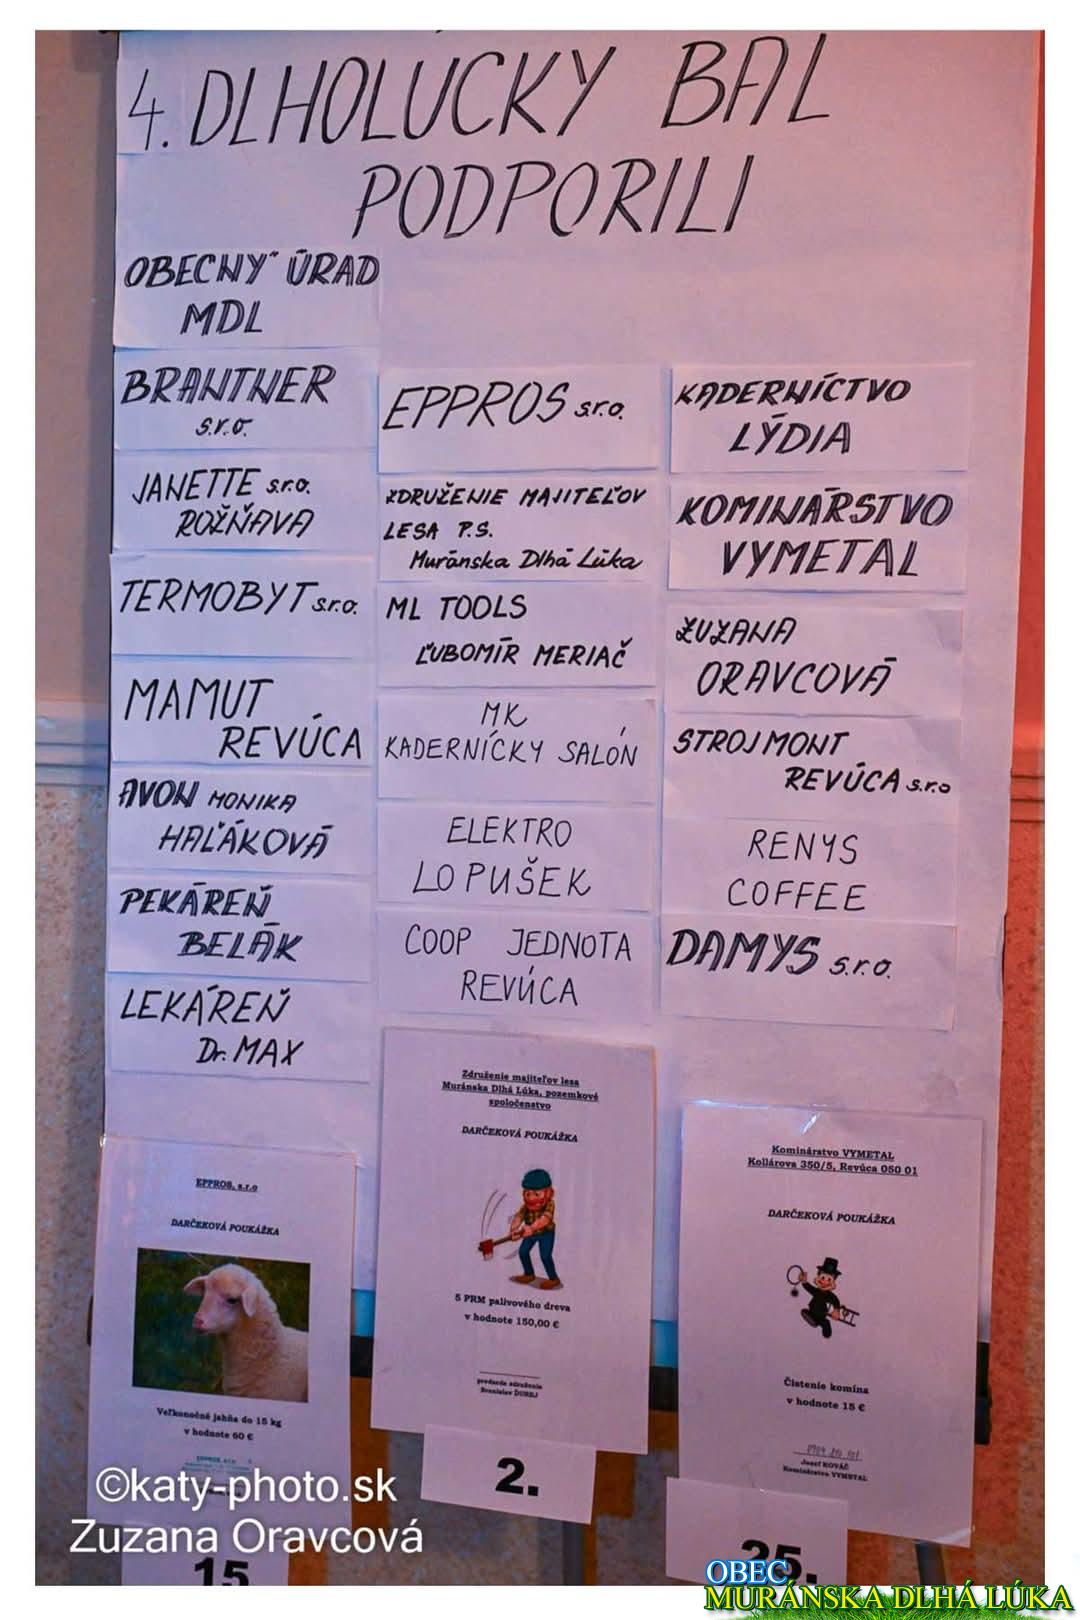 4. DLHOLÚCKY BÁL
PODPORILI
OBECNÝ ÚRAD
MDL
BRANTNER
s.r.o.
JANETTE s.r.o.
ROŽŇAVA
TERMOBYT s.r.o.
MAMUT
REVÚCA
AVON MONIKA
HAĽÁKOVÁ
PEKÁREŇ
BELÁK
LEKÁREŇ
Dr. MAX
EPPROS s.r.o.
ZDRUŽENIE MAJITEĽOV
LESA P.S.
Muránska Dlhá Lúka
ML TOOLS
ĽUBOMÍR MERIAČ
MK
KADERNÍCKY SALÓN
ELEKTRO
LOPUŠEK
COOP JEDNOTA
REVÚCA
KADERNÍCTVO
LÝDIA
KOMINÁRSTVO
VYMETAL
ZUZANA
ORAVCOVÁ
STROJMONT
REVÚCA s.r.o
RENYS
COFFEE
DAMYS s.r.o.
EPPROS, s.r.o
DARČEKOVÁ POUKÁŽKA
Veľkonočné jahňa do 15 kg
v hodnote 60 €
15
Združenie majiteľov lesa
Muránska Dlhá Lúka, pozemkové
spoločenstvo
DARČEKOVÁ POUKÁŽKA
5 PRM palivového dreva
v hodnote 150,00 €
predseda združenia
Branislav ĎUREJ
2.
Kominárstvo VYMETAL
Kollárova 350/5, Revúca 050 01
DARČEKOVÁ POUKÁŽKA
Čistenie komína
v hodnote 15 €
Jozef KOVÁČ
Kominárstvo VYMETAL
25.
©katy-photo.sk
Zuzana Oravcová
OBEC
MURÁNSKA DLHÁ LÚKA